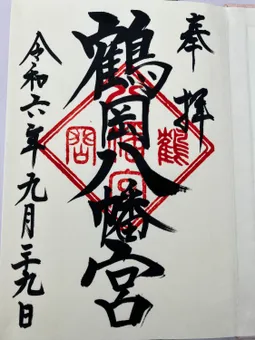 奉拝
鶴岡八幡宮
令和六年九月二十九日
鶴
岡